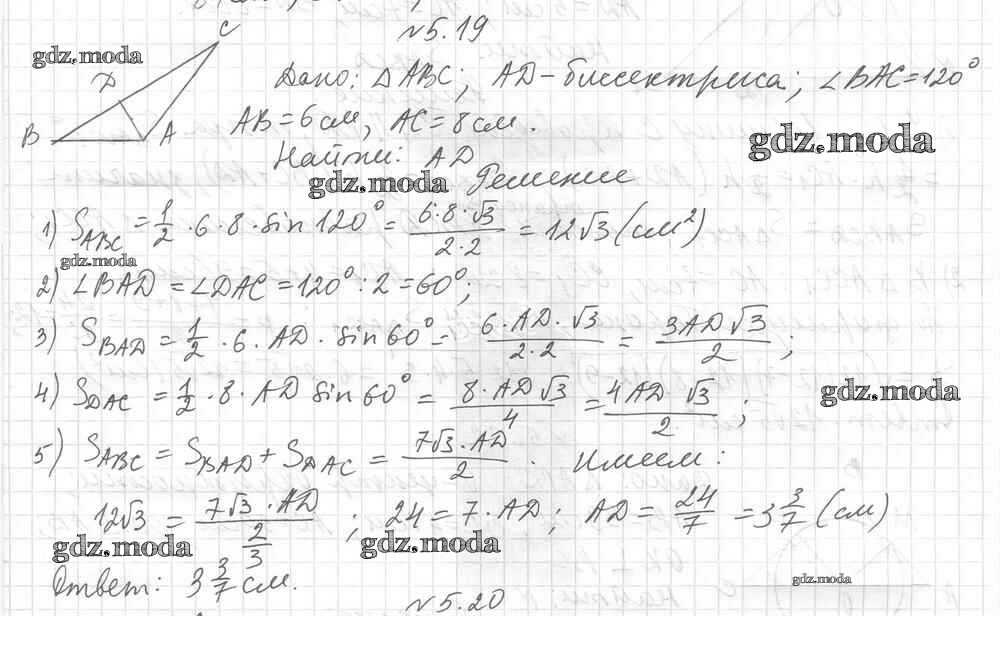 N5.19
C
gdz.moda
D
Дано: △ABC; AD-биссектриса; ∠BAC=120°
B A AB=6 см, AC=8 см.
gdz.moda
Найти: AD
gdz.moda Решение
1) S_ABC = 1/2 · 6 · 8 · sin 120° = (6·8·√3)/(2·2) = 12√3 (см²)
gdz.moda
2) ∠BAD = ∠DAC = 120° : 2 = 60°;
3) S_BAD = 1/2 · 6 · AD · sin 60° = (6·AD·√3)/(2·2) = (3AD√3)/2;
4) S_DAC = 1/2 · 8 · AD sin 60° = (8·AD√3)/4 = (4AD √3)/2;
gdz.moda
5) S_ABC = S_BAD + S_DAC = (7√3·AD)/2. Имеем:
12√3 = (7√3·AD)/2; 24 = 7·AD; AD = 24/7 = 3 3/7 (см)
3
gdz.moda gdz.moda
Ответ: 3 3/7 см.
gdz.moda
N5.20